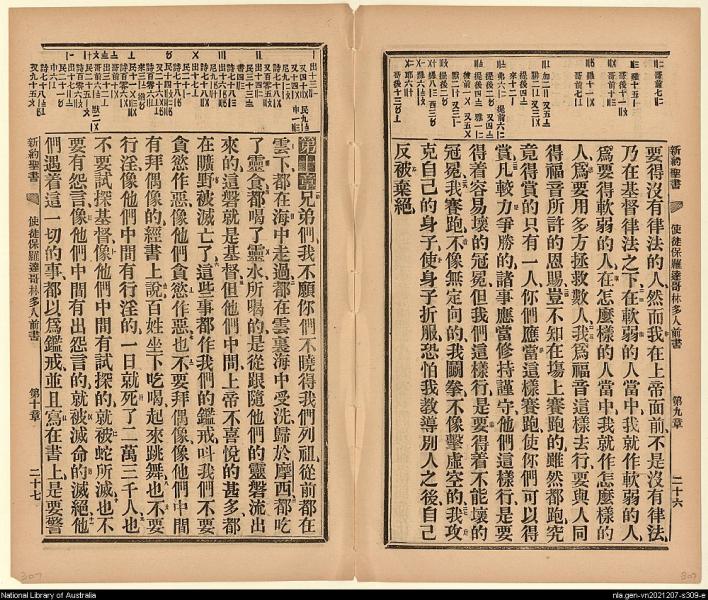 新約聖書 使徒保羅達哥林多人前書 第九章 二十六
要得沒有律法的人、然而我在上帝面前、不是沒有律法、
乃在基督律法之下、在軟弱的人當中、我就作軟弱的人、
爲要得軟弱的人、在怎麼樣的人當中、我就作怎麼樣的
人、爲要用多方拯救數人、我爲福音這樣去行、要與人同
得福音所許的恩賜、豈不知在場上賽跑的、雖然都跑、究
竟得賞的只有一人、你們應當這樣賽跑、使你們可以得
賞、凡較力爭勝的、諸事應當修持謹守、他們這樣行是要
得着容易壞的冠冕、但我們這樣行、是要得着不能壞的
冠冕、我賽跑不像無定向的、我鬬拳不像擊虛空的、我攻
克自己的身子、使身子折服、恐怕我教導別人之後、自己
反被棄絕、
第十章 兄弟們、我不願你們不曉得、我們列祖從前都在
雲下、都在海中走過、都在雲裏海中受洗歸於摩西、都吃
了靈食、都喝了靈水、所喝的是從跟隨他們的靈磐流出
來的、這磐就是基督、但他們中間、上帝不喜悅的甚多、都
在曠野被滅亡了、這些事都作我們的鑑戒、叫我們不要
貪慾作惡、像他們貪慾作惡、也不要拜偶像、像他們中間
有拜偶像的、經書上說、百姓坐下吃喝、起來跳舞、也不要
行淫、像他們中間有行淫的、一日就死了二萬三千人、也
不要試探基督、像他們中間有試探的、就被蛇所滅、也不
要有怨言、像他們中間有出怨言的、就被滅命的滅絕、他
們遇着這一切的事、都以爲鑑戒、並且寫在書上、是要警
新約聖書 使徒保羅達哥林多人前書 第十章 二十七
307
307
National Library of Australia
nla.gen-vn2021207-s309-e